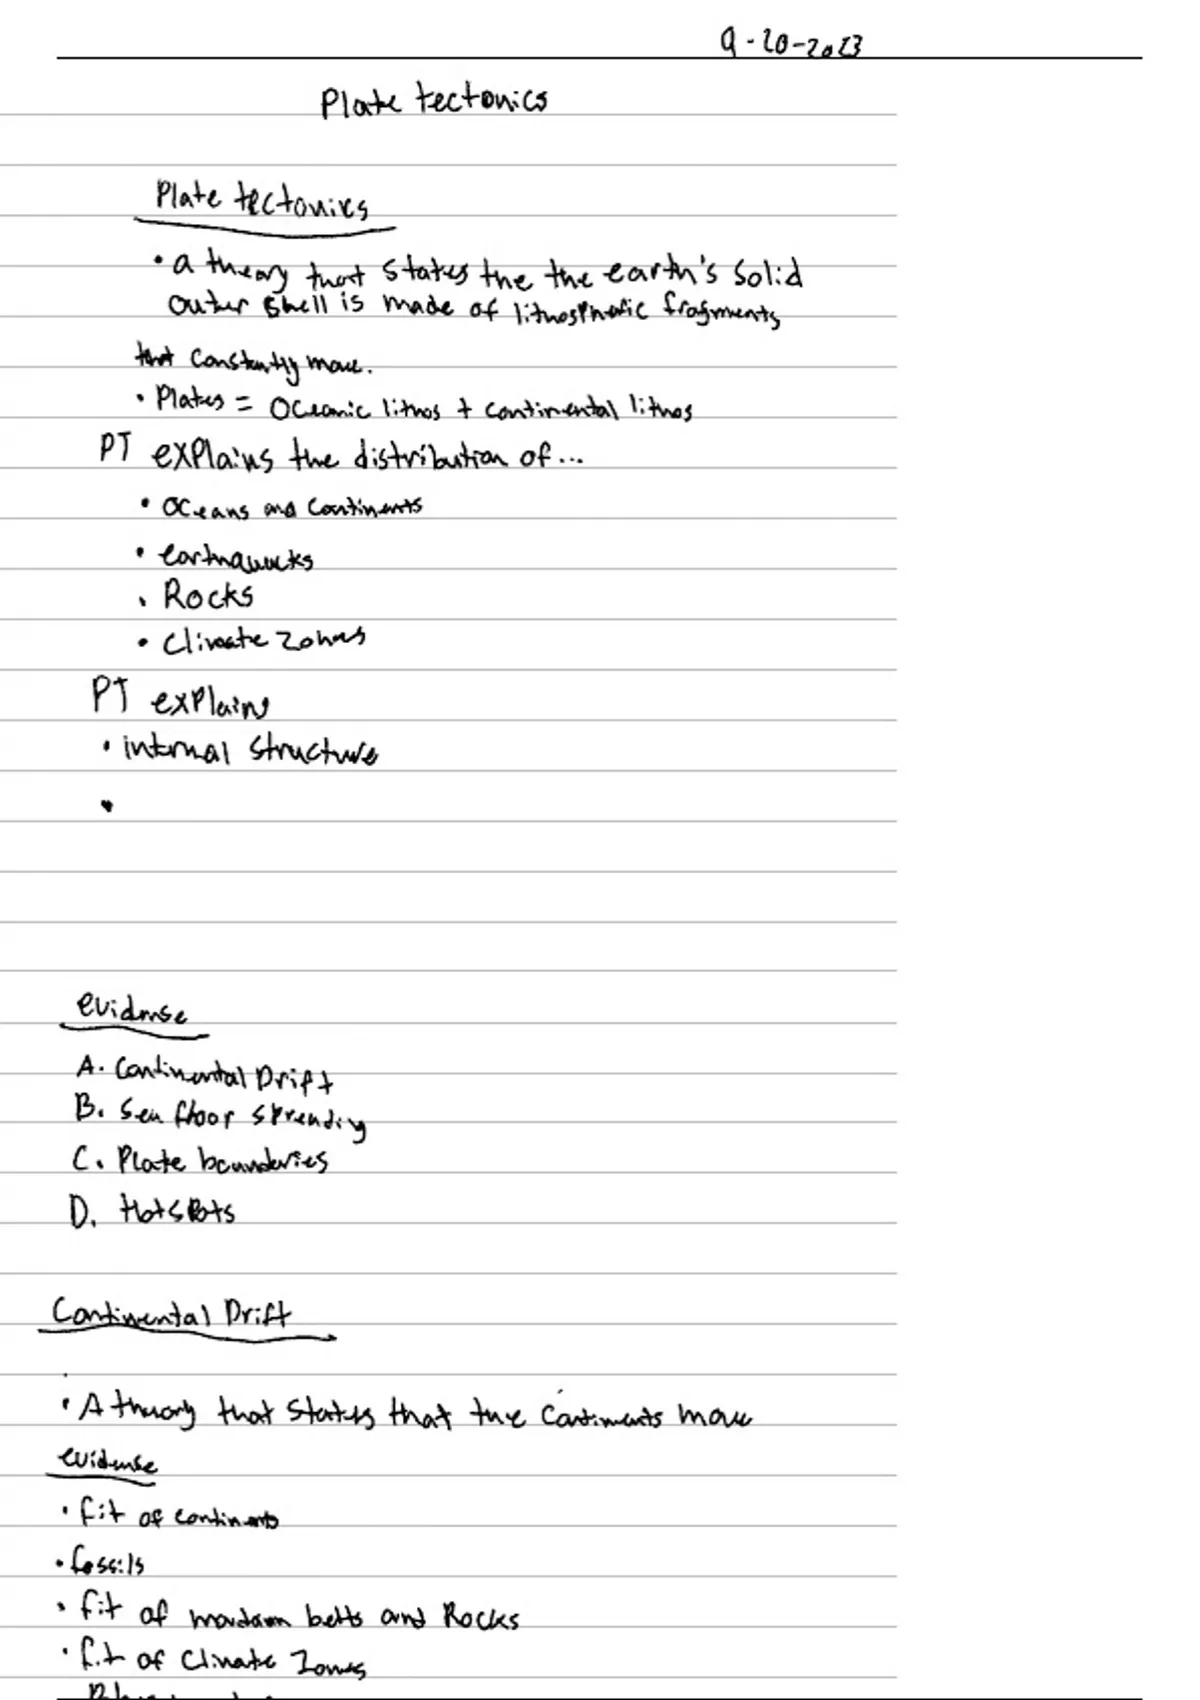 9-20-2023
Plate tectonics
Plate tectonics
• a theory that states the the earth's solid
outer shell is made of lithospheric fragments
that constantly move.
• Plates = Oceanic lithos + continental lithos
PT explains the distribution of...
• Oceans and Continents
• earthquacks
• Rocks
• Climate zones
PT explains
• internal structure
•
evidense
A. Continental Drift
B. Sea floor spreading
C. Plate bounderies
D. HotsPots
Continental Drift
• A theory that states that the Continents move
evidense
• fit of continents
• fossils
• fit of mountain belts and Rocks
• fit of Climate Zones